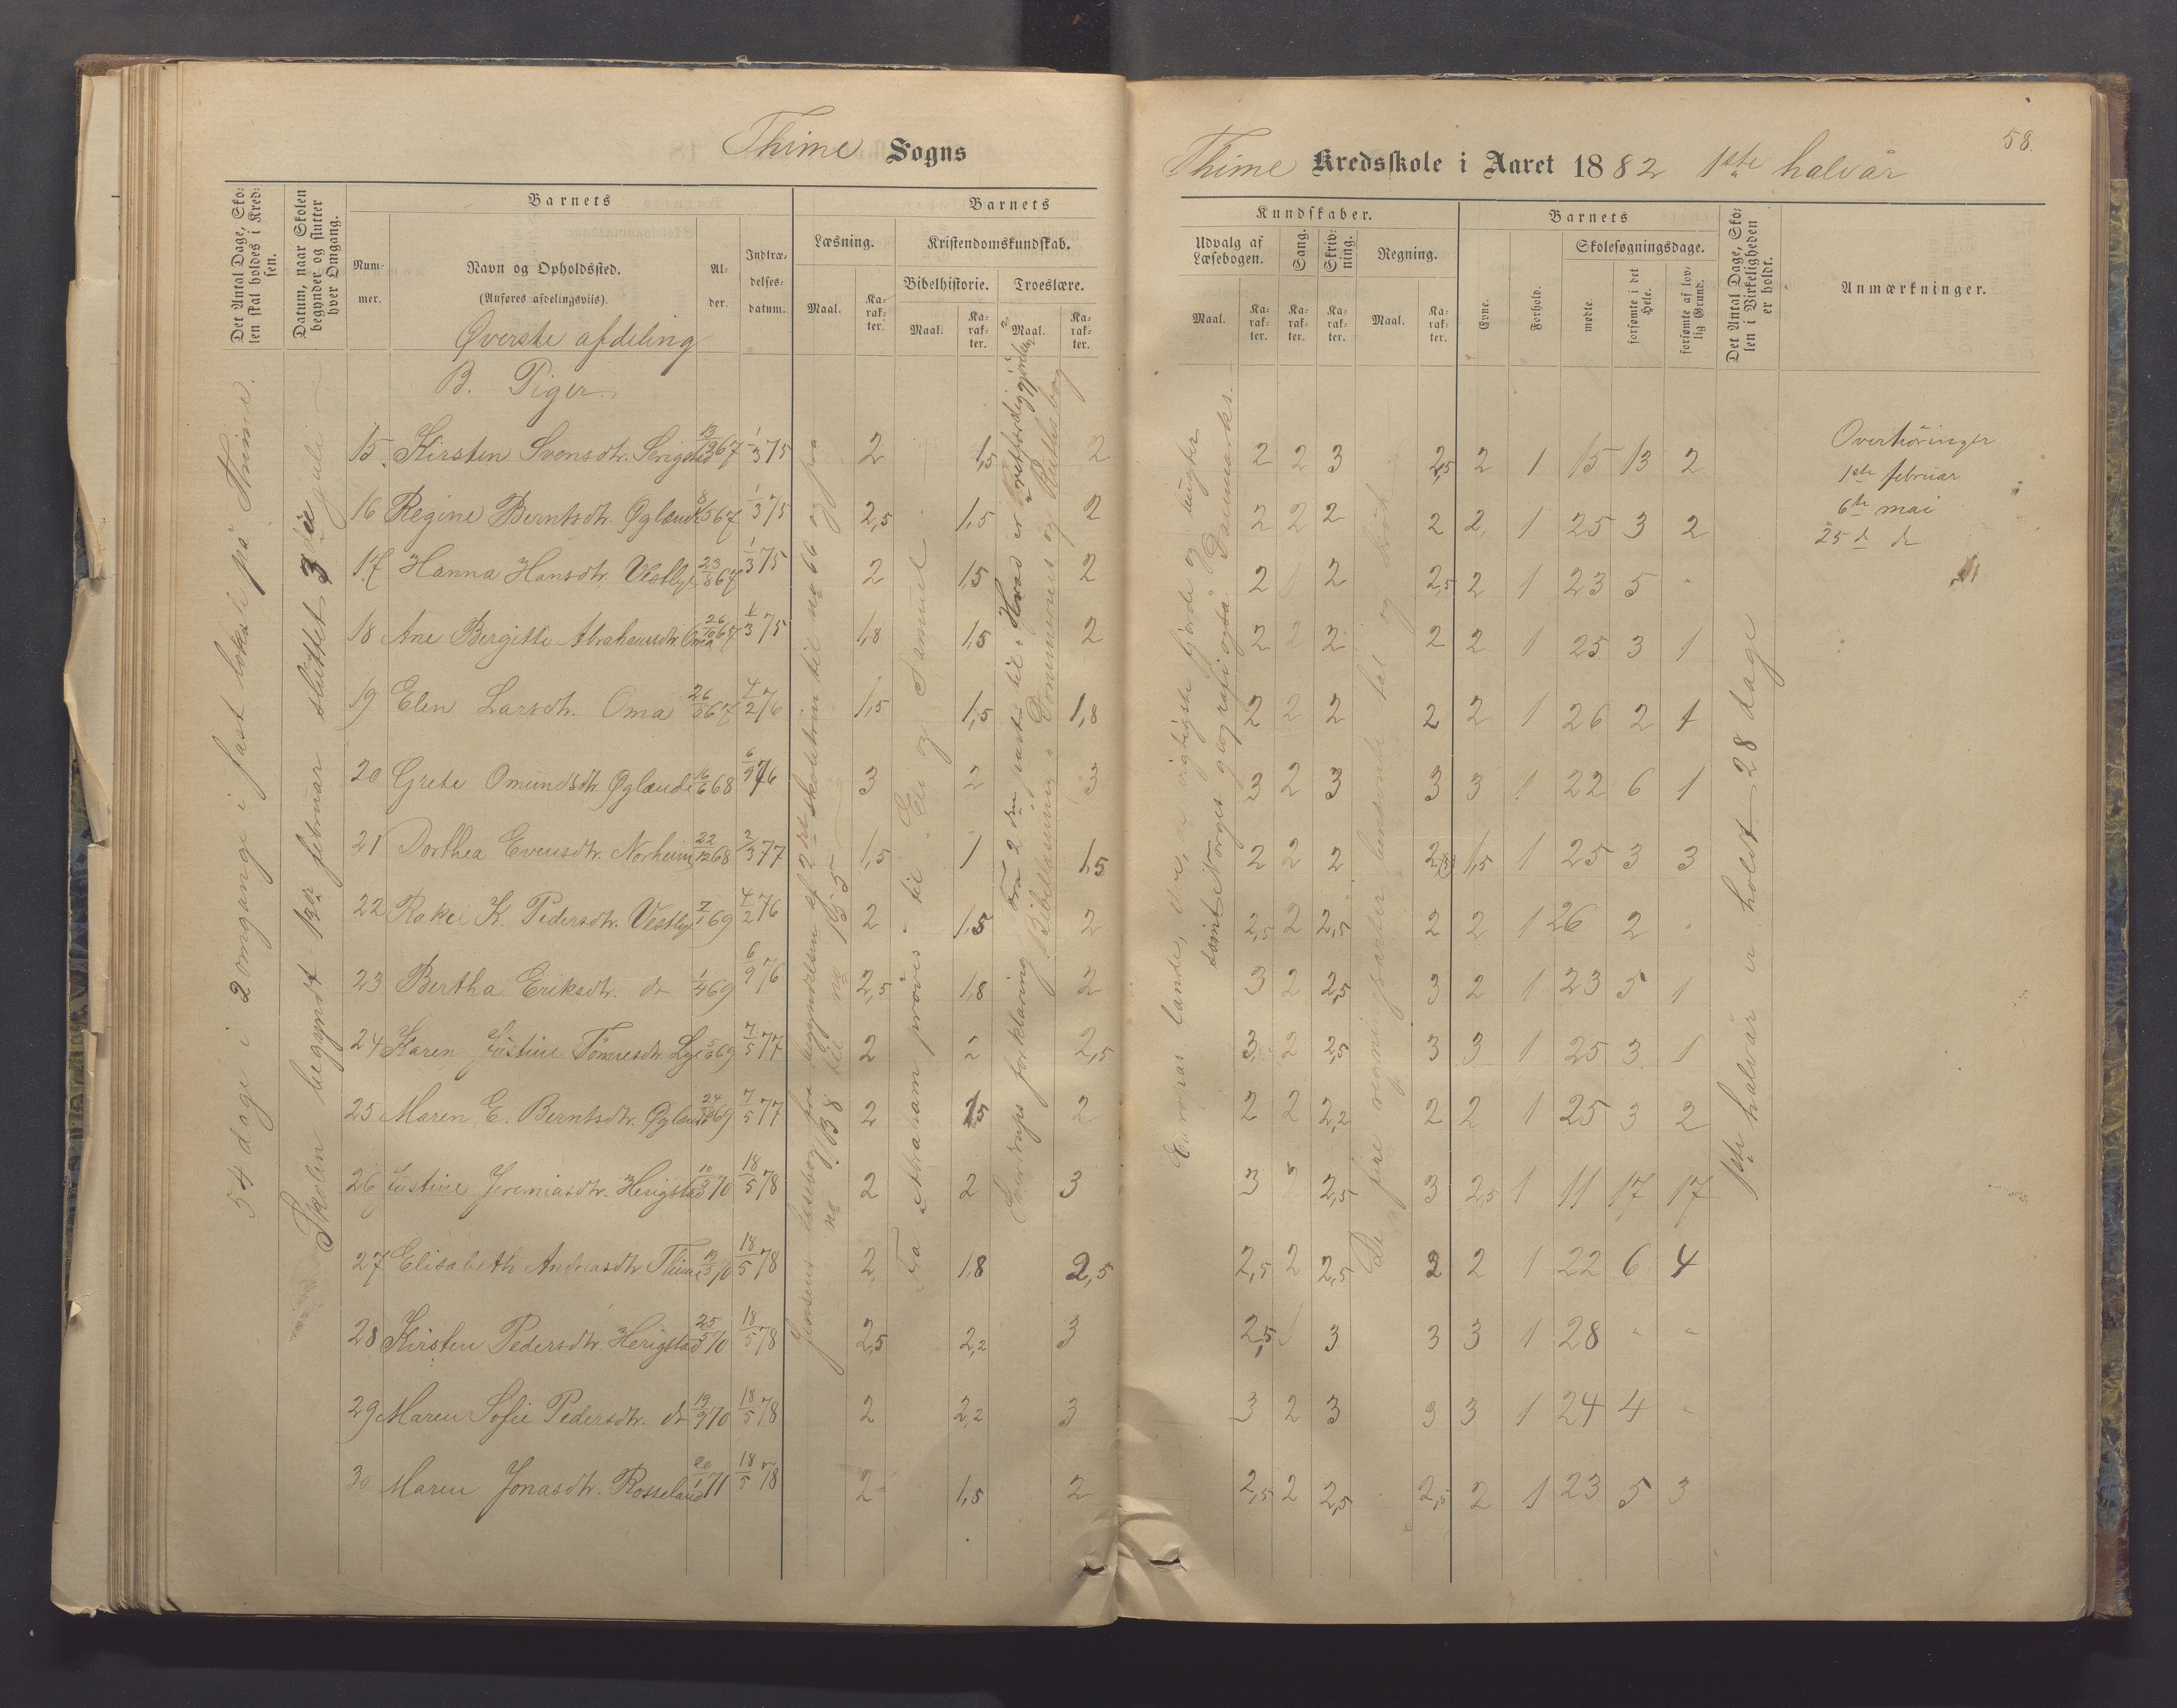 Thime Sogns
Det Antal Dage, Sko-
len skal holdes i Kred-
sen.
Datum, naar Skolen
begynder og slutter
hver Omgang.
Barnets
Num-
mer.
Navn og Opholdssted.
(Anføres afdelingsviis).
Al-
der.
Indtræ-
delses-
datum.
Barnets
Læsning.
Kristendomskundskab.
Bibelhistorie.
Troeslære.
Maal.
Ka-
rak-
ter.
Maal.
Ka-
rak-
ter.
Maal.
Ka-
rak-
ter.
Øverste afdeling
B. Piger
54 dage i 2 omgange i fast lokale på Thime.
Skolen begyndt 1ste februar sluttet 3die juli
15 Kirsten Svensdtr. 13/9 67 1/3 75 2 1,5 2
16 Regine Berntsdtr. Øglænd 8/5 67 1/3 75 2,5 1,5 2
17 Hanna Hansdtr. Vestly 23/8 67 1/3 75 2 1,5 2
18 Ane Bergitte Abrahamsdtr. Oma 26/10 67 1/3 75 1,8 1,5 2
19 Elen Larsdtr. Oma 26/5 67 4/2 76 1,5 1,5 1,8
20 Grete Omundsdtr. Øglænd 16/6 68 6/9 76 3 2 3
21 Dorthea Evensdtr. Norheim 22/12 68 2/3 77 1,5 1 1,5
22 Rakel K. Pedersdtr. Vestly 7/1 69 4/2 76 2 1,5 2
23 Bertha Eriksdtr. do 1/4 69 6/9 76 2,5 1,8 2
24 Karen Justine Tønnesdtr. Lye 5/6 69 7/5 77 2 2 2,5
25 Maren E. Berntsdtr. Øglænd 24/10 69 7/5 77 2 1,5 2
26 Justine Jeremiasdtr. Herigstad 10/3 70 18/5 78 2 2 3
27 Elisabeth Andreasdtr. Thime 13/3 70 18/5 78 2 1,8 2,5
28 Kirsten Pedersdtr. Herigstad 25/5 70 18/5 78 2,5 2,2 3
29 Maren Sofie Pedersdtr. do 19/9 70 18/5 78 2 2,2 3
30 Maren Jonasdtr. Rosseland 20/1 71 18/5 78 2 1,5 2
Jensens læsebog fra begyndelsen af 2det skoletrin til no 66 og fra
no 138 til no 155
Fra "Abraham prøves" til "Eli og Samuel"
Sverdrups forklaring fra 2den part til "Hvad er retfærdiggjørelse"
Bibellæsning: Dommernes og Ruths bog
58.
Thime Kredsskole i Aaret 1882 1ste halvår
Kundskaber.
Udvalg af
Læsebogen.
Sang.
Skriv-
ning.
Regning.
Maal.
Ka-
rak-
ter.
Ka-
rak-
ter.
Ka-
rak-
ter.
Maal.
Ka-
rak-
ter.
Barnets
Evne.
Forhold.
Skolesøgningsdage.
mødte.
forsømte i det
Hele.
forsømte af lov-
lig Grund.
Det Antal Dage, Sko-
len i Virkeligheden
er holdt.
Anmærkninger.
Europas lande, elve, vigtigste fjorde og bugter
samt Norges geografi også Danmarks.
De fire regningsarter i benævnte tal og brøk
1ste halvår er holdt 28 dage
2 2 3 2,5 2 1 15 13 2
2 2 2 2 2 1 25 3 2
2 1 2 2,5 2 1 23 5 "
2 2 2 2 2 1 25 3 1
2 2 2 2 2 1 26 2 1
3 2 3 3 3 1 22 6 1
2 2 2 1,5 1 25 3 3
2,5 2 2,5 2 2 1 26 2 "
3 2 2,5 3 2 1 23 5 1
3 2 2,5 3 3 1 25 3 1
2 2 2,2 2 2 1 25 3 2
3 2 2,5 3 2,5 1 11 17 17
2,5 2 2,5 2 2 1 22 6 4
2,5 1 3 3 3 1 28 " "
3 2 3 3 3 1 24 4 "
2,5 2 2,5 2,5 2 1 23 5 3
Overhøringer
1ste februar
6te mai
25 d do